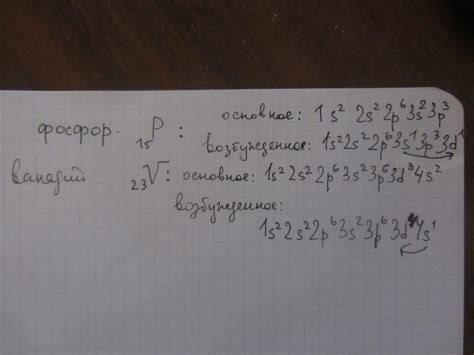 фосфор. ₁₅P : основное: 1s² 2s² 2p⁶3s²3p³
возбужденное: 1s²2s²2p⁶3s¹3p³3d¹
ванадий ₂₃V: основное: 1s²2s²2p⁶3s²3p⁶3d³4s²
возбужденное:
1s²2s²2p⁶3s²3p⁶3d⁴4s¹